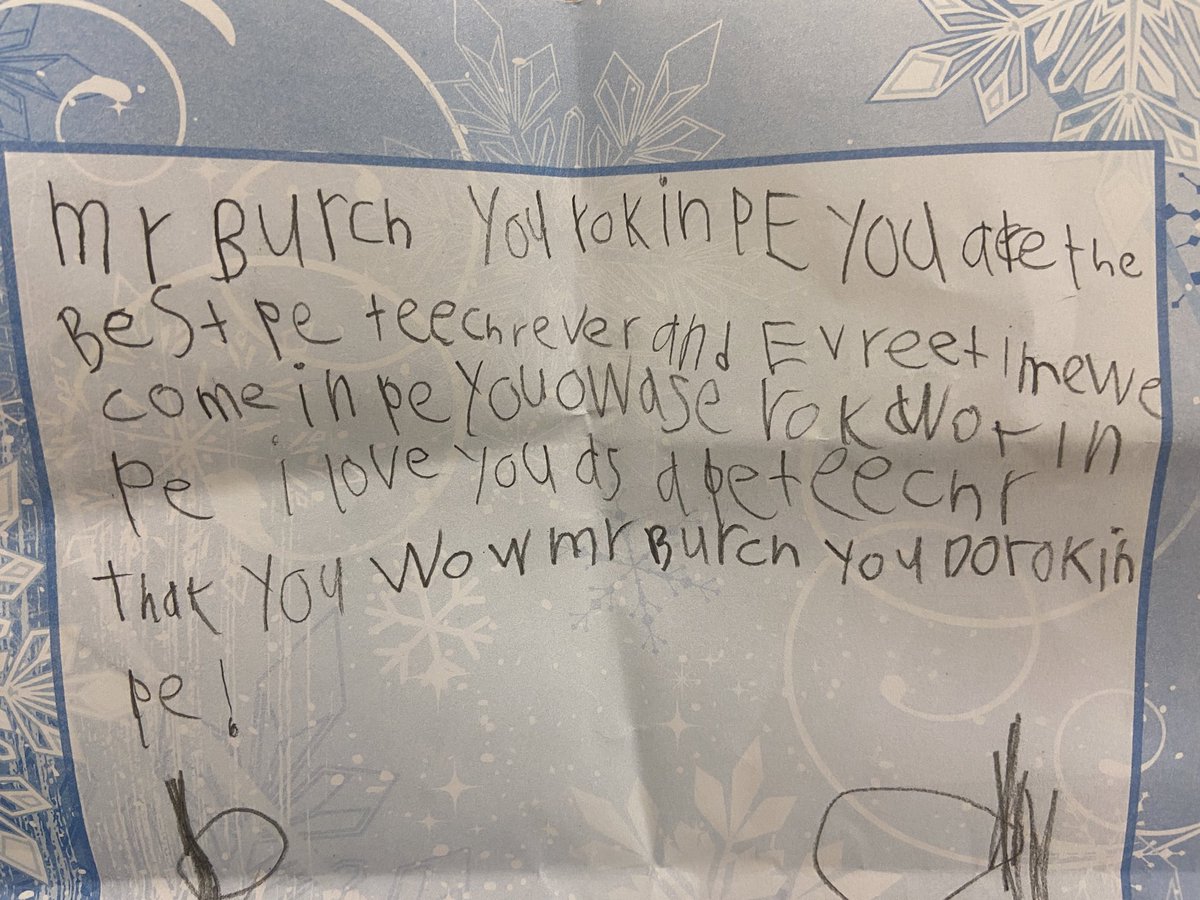 mr Burch You rok in PE YOU are the
BeSt pe teechr ever and Evreetime we
come in pe You owase rok Wor in
pe i love you as a pe teechr
thak you Wow mr Burch you Do rok in
pe!